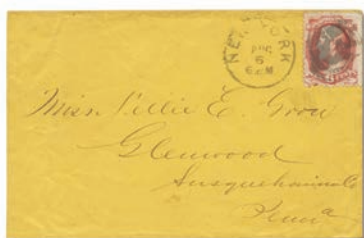 NEW YORK
AUG
6
6 P.M
Miss. Nellie E. Grow
Glenwood
Susquehanna Co
Penna